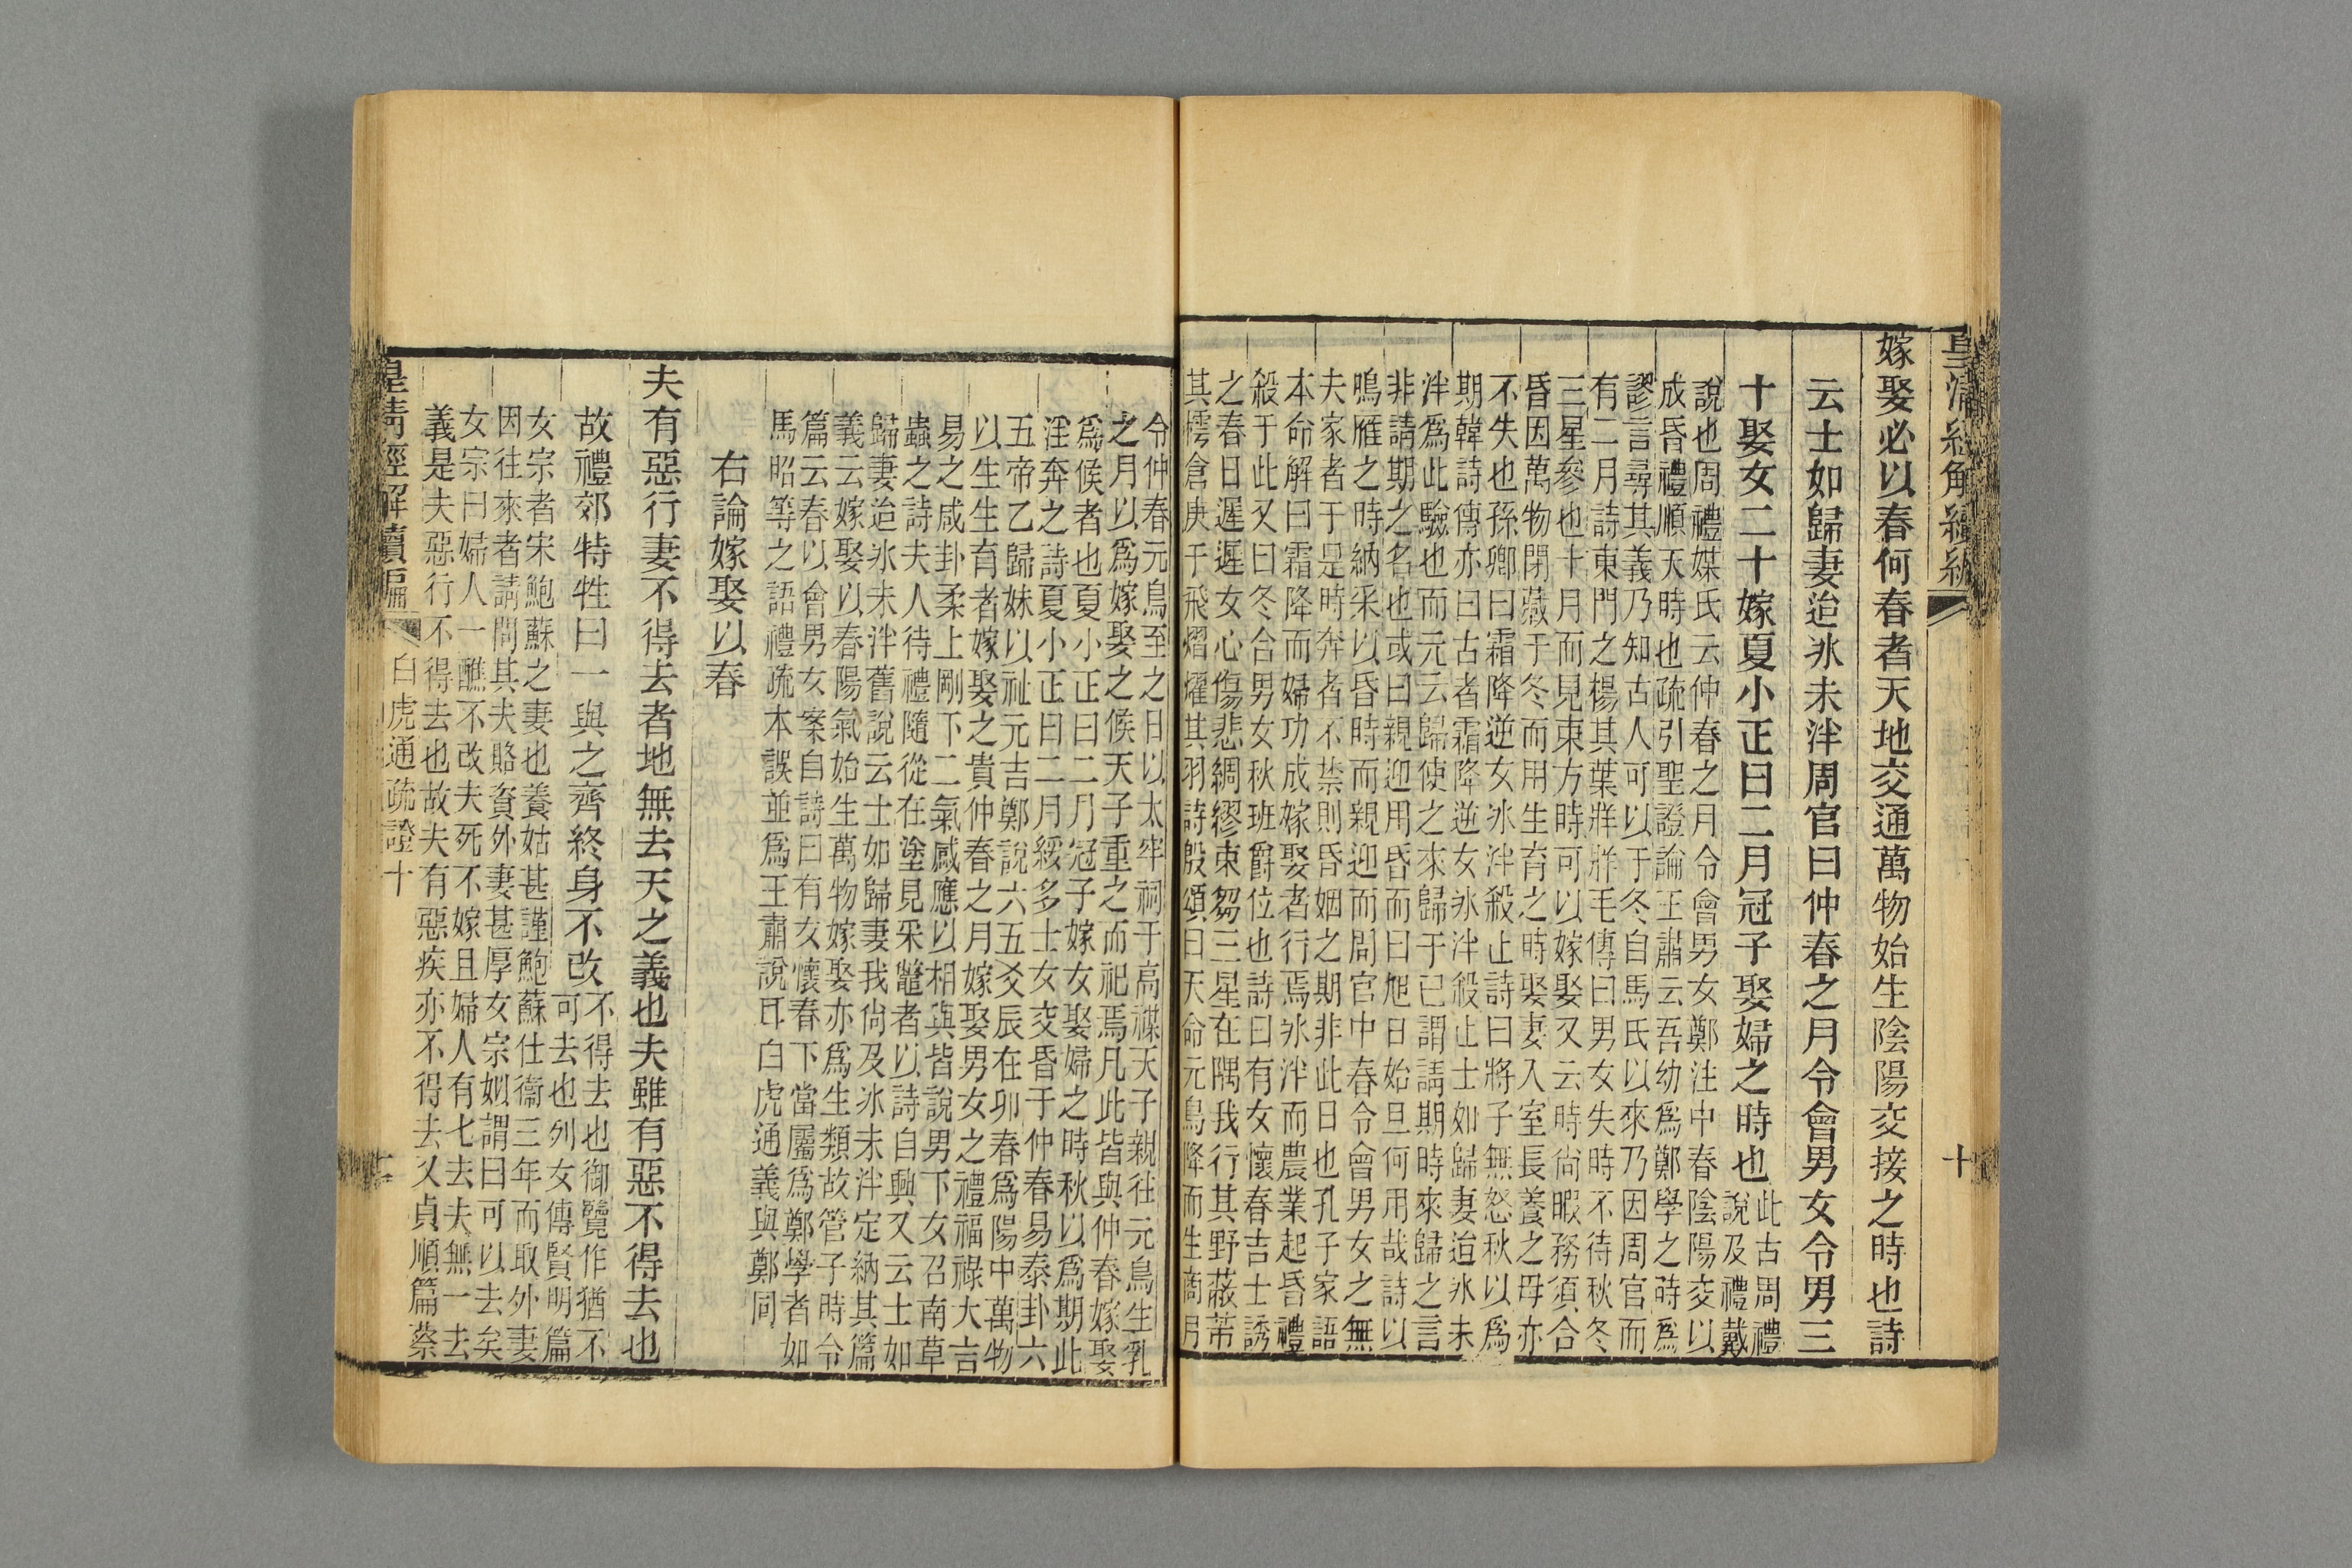 皇清經解續編
十
嫁娶必以春何春者天地交通萬物始生陰陽交接之時也詩
云士如歸妻迨冰未泮周官曰仲春之月令會男女令男三
十娶女二十嫁夏小正曰二月冠子娶婦之時也此古周禮
說及禮戴
說也周禮媒氏云仲春之月令會男女鄭注中春陰陽交以
成昏禮順天時也疏引聖證論王肅云吾幼爲鄭學之時爲
謬言尋其義乃知古人可以于冬自馬氏以來乃因周官而
有二月詩東門之楊其葉牂牂毛傳曰男女失時不待秋冬
三星參也十月而見東方時可以嫁娶又云時尙暇務須合
昏因萬物閉藏于冬而用生育之時娶妻入室長養之母亦
不失也孫卿曰霜降逆女冰泮殺止詩曰將子無怒秋以爲
期韓詩傳亦曰古者霜降逆女冰泮殺止士如歸妻迨冰未
泮爲此驗也而元云歸使之來歸于已謂請期時來歸之言
非請期之名也或曰親迎用昏而曰旭日始旦何用哉詩以
鳴雁之時納采以昏時而親迎而周官中春令會男女之無
夫家者于是時奔者不禁則昏姻之期非此日也孔子家語
本命解曰霜降而婦功成嫁娶者行焉冰泮而農業起昏禮
殺于此又曰冬合男女秋班爵位也詩曰有女懷春吉士誘
之春日遲遲女心傷悲綢繆束芻三星在隅我行其野蔽芾
其樗倉庚于飛熠燿其羽詩殷頌曰天命元鳥降而生商月
令仲春元鳥至之日以太牢祠于高禖天子親往元鳥生乳
之月以爲嫁娶之候天子重之而祀焉凡此皆與仲春嫁娶
爲候者也夏小正曰二月冠子嫁女娶婦之時秋以爲期此
淫奔之詩夏小正曰二月綏多士女交昏于仲春易泰卦六
五帝乙歸妹以祉元吉鄭說六五爻辰在卯春爲陽中萬物
以生生育者嫁娶之貴仲春之月嫁娶男女之禮福祿大吉
易之咸卦柔上剛下二氣感應以相與皆說男下女召南草
蟲之詩夫人待禮隨從在塗見采鼈者以詩自興又云士如
歸妻迨冰未泮舊說云士如歸妻我尙及冰未泮定納其篇
義云嫁娶以春陽氣始生萬物嫁娶亦爲生類故管子時令
篇云春以會男女案自詩曰有女懷春下當屬爲鄭學者如
馬昭等之語禮疏本誤並爲王肅說耳白虎通義與鄭同
右論嫁娶以春
夫有惡行妻不得去者地無去天之義也夫雖有惡不得去也
故禮郊特牲曰一與之齊終身不改不得去也御覽作猶不
可去也列女傳賢明篇
女宗者宋鮑蘇之妻也養姑甚謹鮑蘇仕衞三年而取外妻
因往來者請問其夫賂資外妻甚厚女宗姒謂曰可以去矣
女宗曰婦人一醮不改夫死不嫁且婦人有七去夫無一去
義是夫惡行不得去也故夫有惡疾亦不得去又貞順篇蔡
皇淸經解續編
白虎通疏證十
十